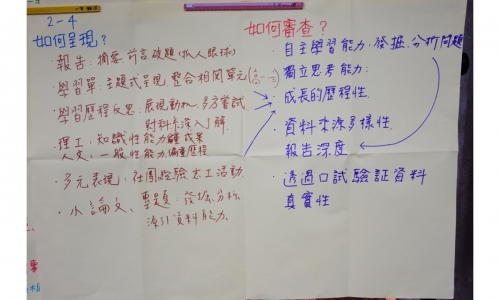 2-4
如何呈現?
· 報告:摘要、前言破題(抓人眼球)
· 學習單:主題式呈現,整合相關單元
· 學習歷程反思:展現動機,多方嘗試
對科系深入了解
· 理工:知識性能力 成果
人文:一般性能力 偏重歷程
· 多元表現:社團經驗、志工活動
· 小論文、專題:發掘、分析、
資料能力
如何審查?
· 自主學習能力,發掘、分析問題
· 獨立思考能力:
· 成長的歷程性
· 資料來源多樣性
報告深度
· 透過口試驗証資料
真實性